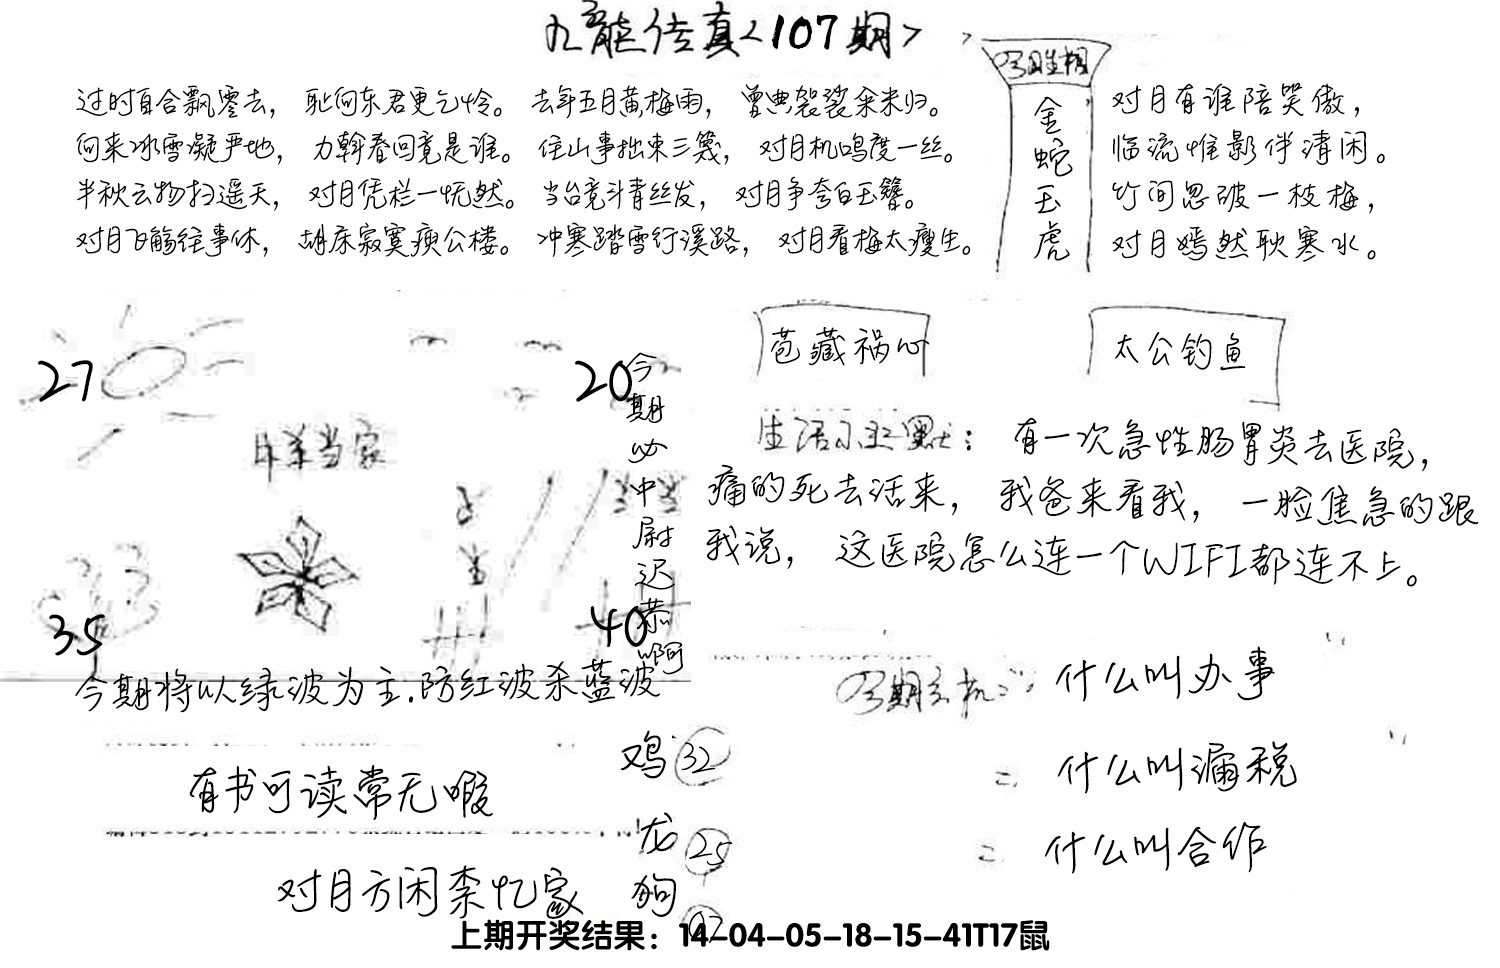 九龙传真<107期>
过时自合飘零去，耻向东君更乞怜。去年五月黄梅雨，曾典袈裟籴米归。
向来冰雪凝严地，力斡春回竟是谁。住山事拙束三篾，对月机鸣度一丝。
半秋云物扫遥天，对月凭栏一怃然。当台竞斗青丝发，对月争夸白玉簪。
对月飞觞往事休，胡床寂寞庾公楼。冲寒踏雪行溪路，对月看梅太瘦生。
金蛇玉虎
对月有谁陪笑傲，
临流惟影伴清闲。
竹间忽破一枝梅，
对月嫣然耿寒水。
27
20
35
40
今期必中尉迟恭啊
今期将以绿波为主.防红波杀蓝波
苞藏祸心
太公钓鱼
生活小幽默：有一次急性肠胃炎去医院，
痛的死去活来，我爸来看我，一脸焦急的跟
我说，这医院怎么连一个WIFI都连不上。
什么叫办事
= 什么叫漏税
= 什么叫合作
有书可读常无暇
对月方闲柰忆家
鸡 32
龙 25
狗
上期开奖结果：14-04-05-18-15-41T17鼠